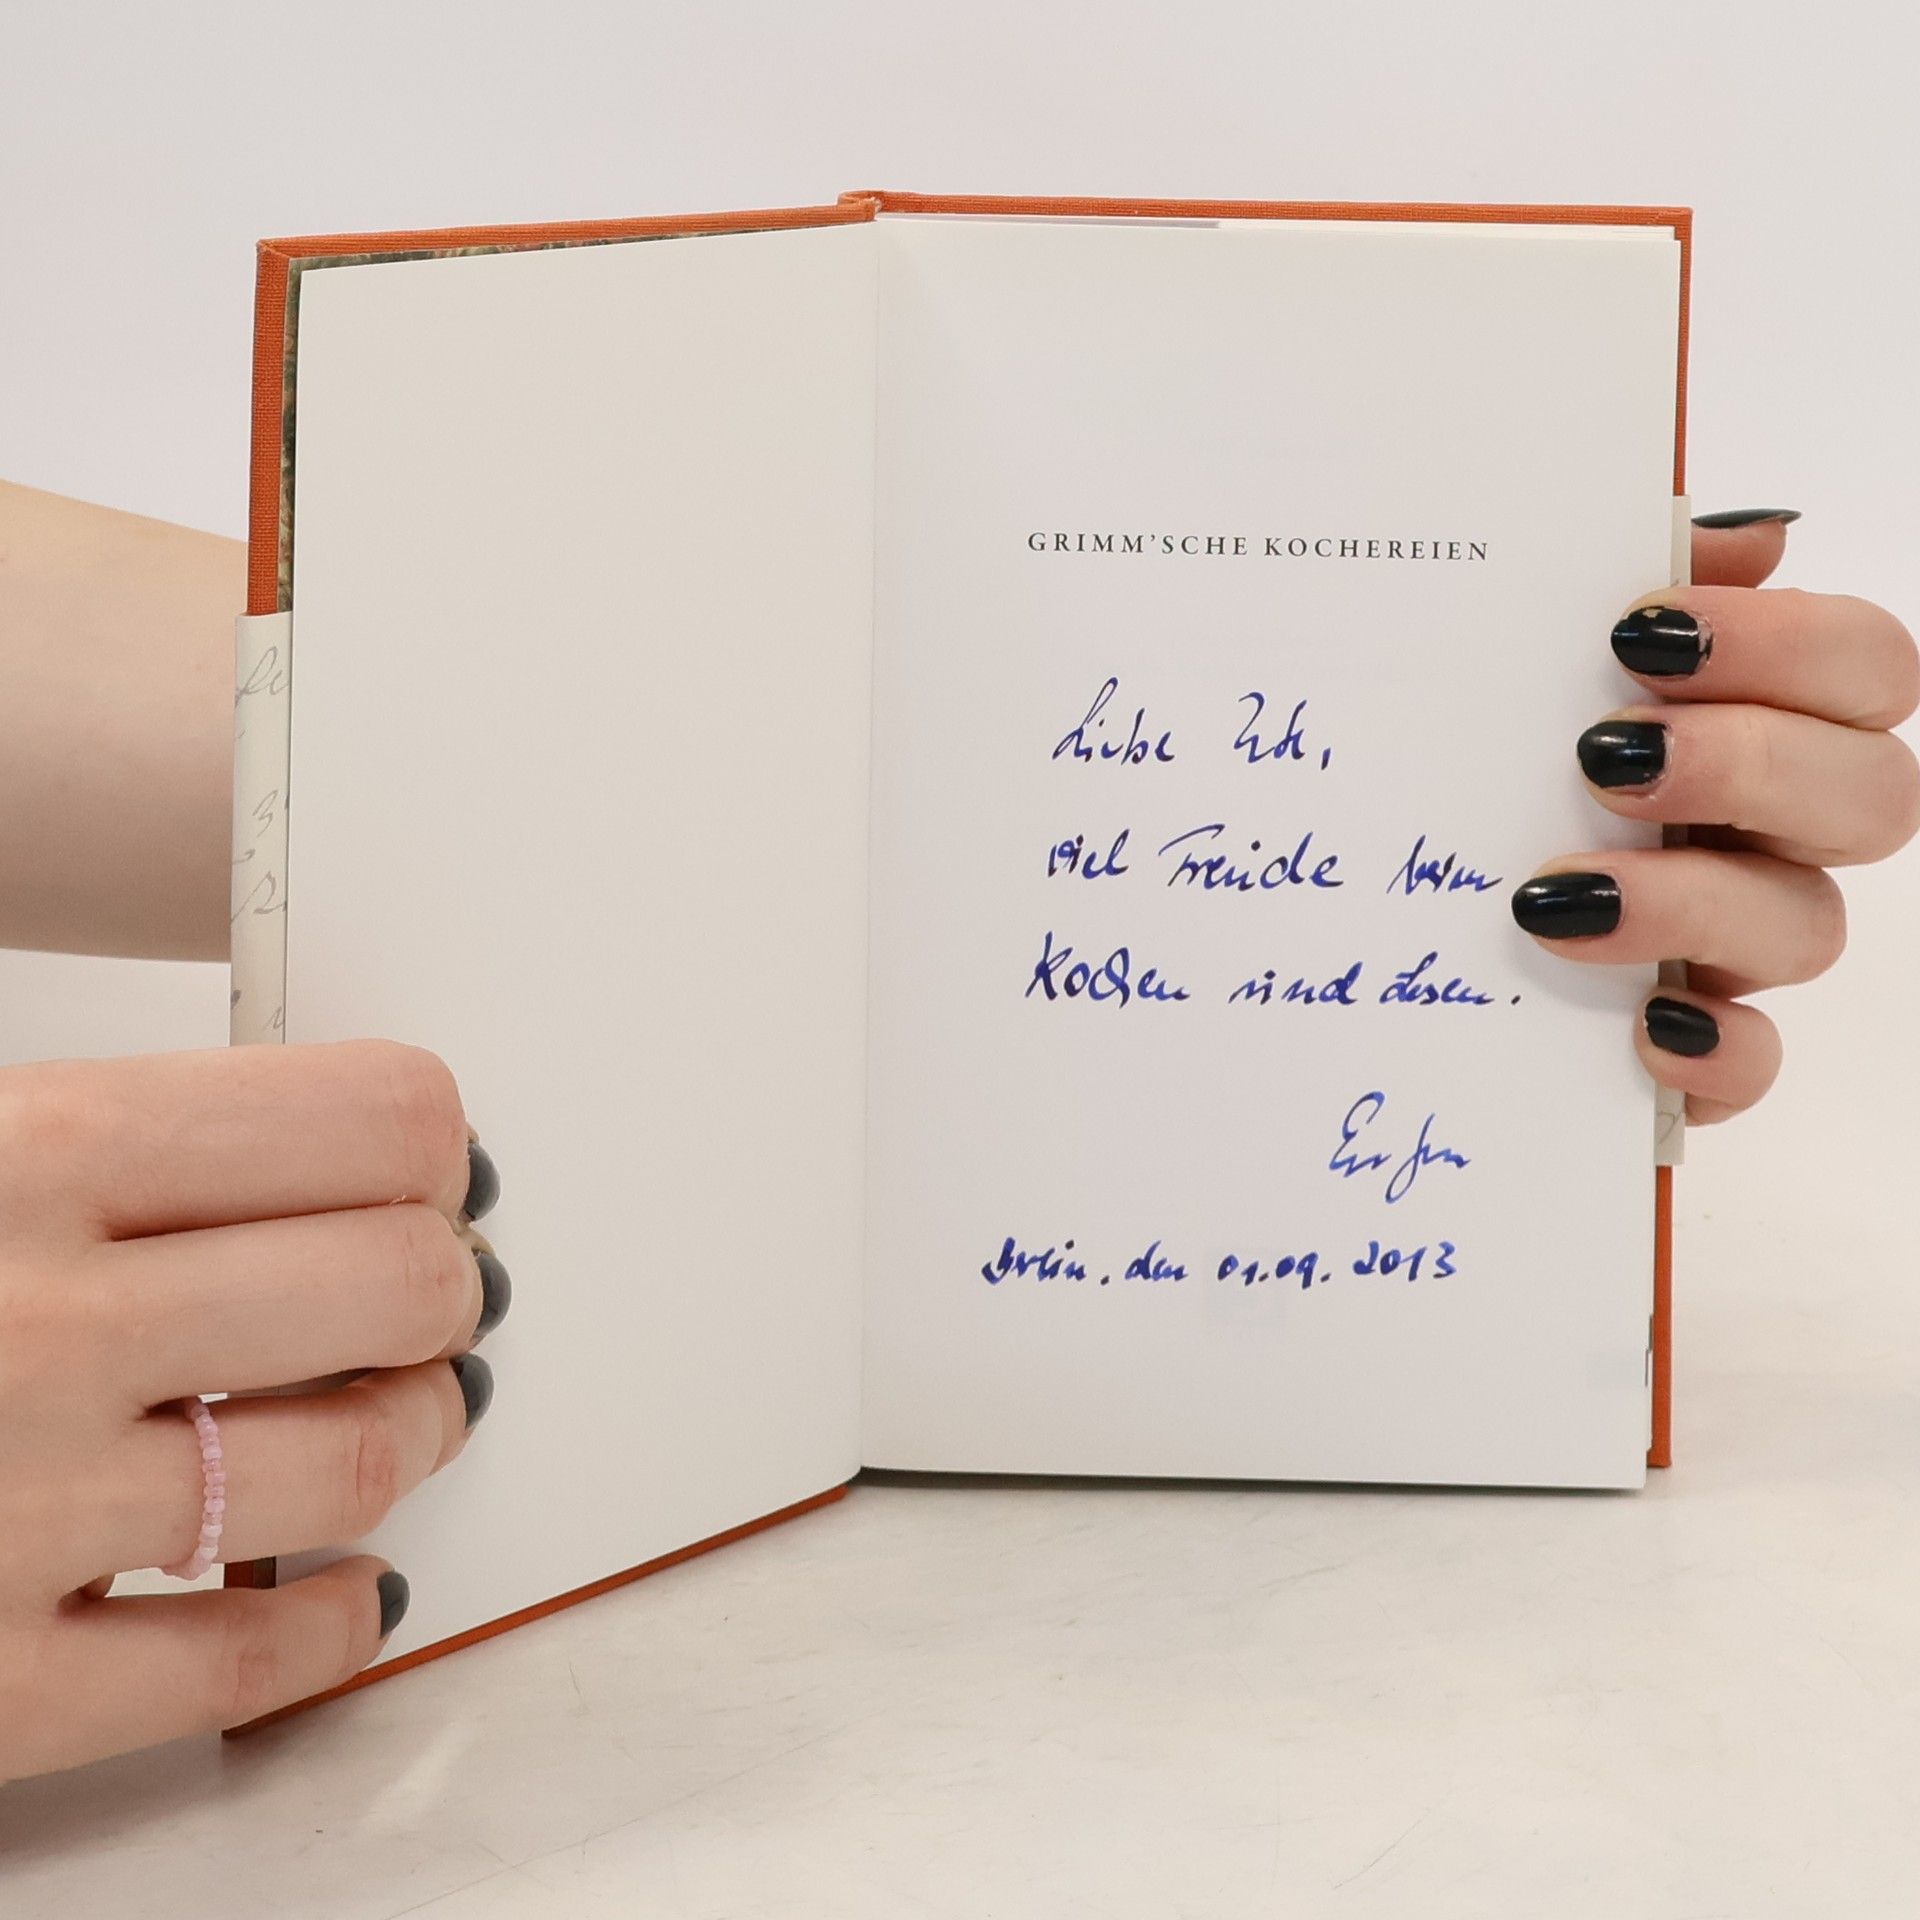 GRIMM'SCHE KOCHEREIEN
Liebe Ute,
viel Freude beim
Kochen und Lesen.
den 01.09.2013